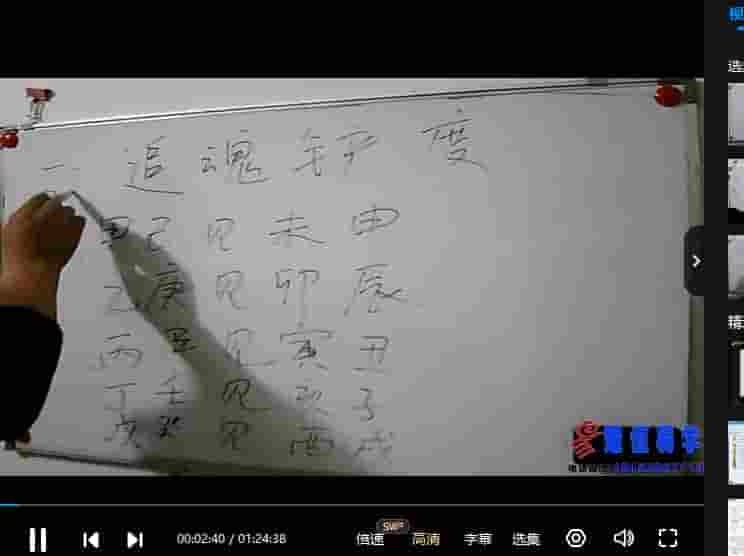 视
选
二 追魂铲度
甲己见未申
乙庚见卯辰
丙辛见寅丑
丁壬见亥子
戊癸见酉戌
精
00:02:40 / 01:24:38
倍速 SVIP 高清 字幕 选集